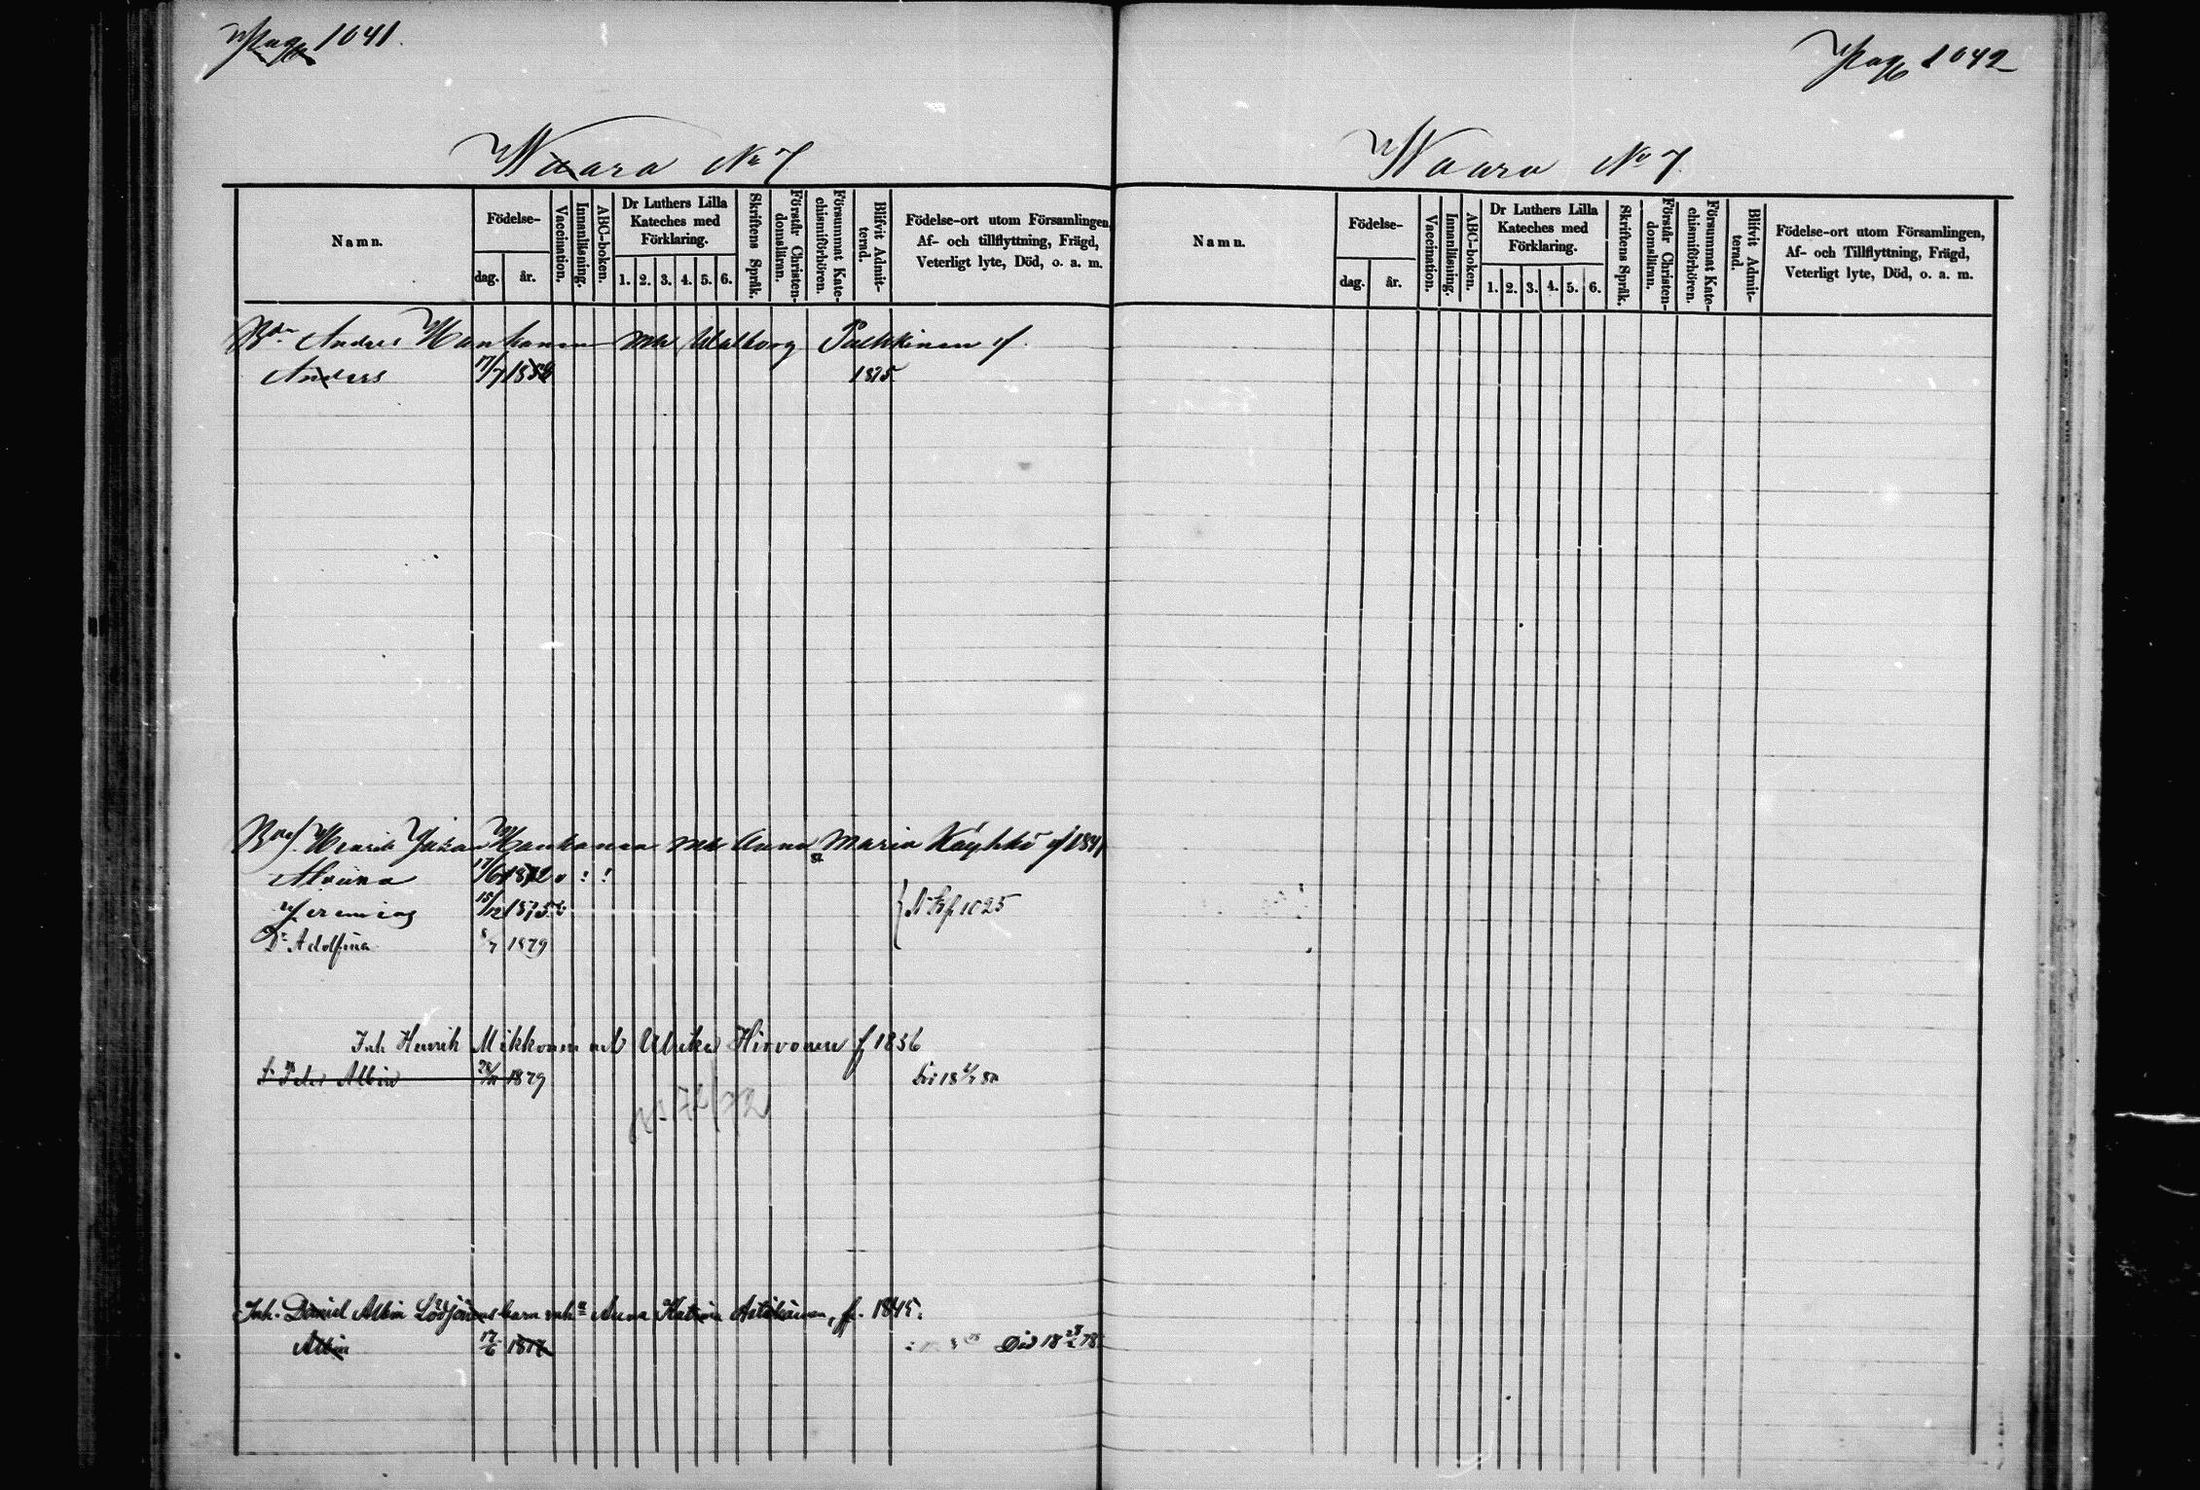 Pag 1041.
Waara No 7
Namn.
Födelse-
dag.
år.
Vaccination.
Innanläsning.
ABC-boken.
Dr Luthers Lilla
Kateches med
Förklaring.
1. 2. 3. 4. 5. 6.
Skriftens Språk.
Förstår Christen-
domsläran.
Försummat Kate-
chismiförhören.
Blifvit Admit-
terad.
Födelse-ort utom Församlingen,
Af- och tillflyttning, Frägd,
Veterligt lyte, Död, o. a. m.
Anders Manhanen Walborg
Anders 17/7 1875
Henrik Manhanen Anna Maria Käyhkö
Alvina 17/6 1872
Jeremias 15/12 1875
Dr Adolfina 1879
1025
Inh Henrik Mikkonen Ulrika Hirvonen f 1856
Peter Albin 1879
Inh. Daniel Albin barn Anna Katrina f. 1845.
Albin 17/6 Död 18 78
Pag 1042
Waara No 7
Namn.
Födelse-
dag.
år.
Vaccination.
Innanläsning.
ABC-boken.
Dr Luthers Lilla
Kateches med
Förklaring.
1. 2. 3. 4. 5. 6.
Skriftens Språk.
Förstår Christen-
domsläran.
Försummat Kate-
chismiförhören.
Blifvit Admit-
terad.
Födelse-ort utom Församlingen,
Af- och Tillflyttning, Frägd,
Veterligt lyte, Död, o. a. m.